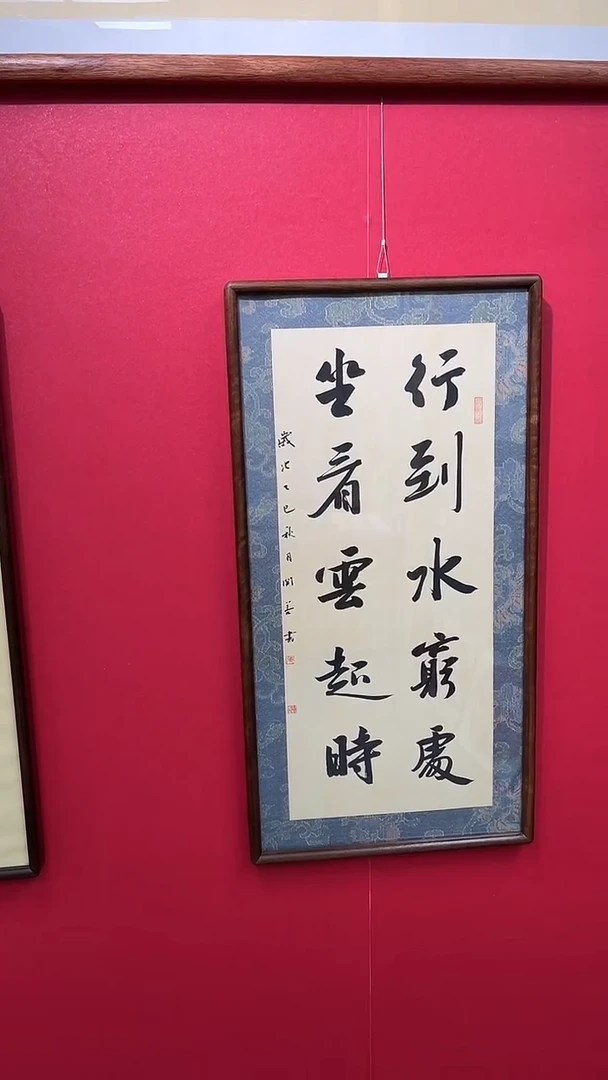 行到水窮處
坐看雲起時
歲次乙巳秋月開善書